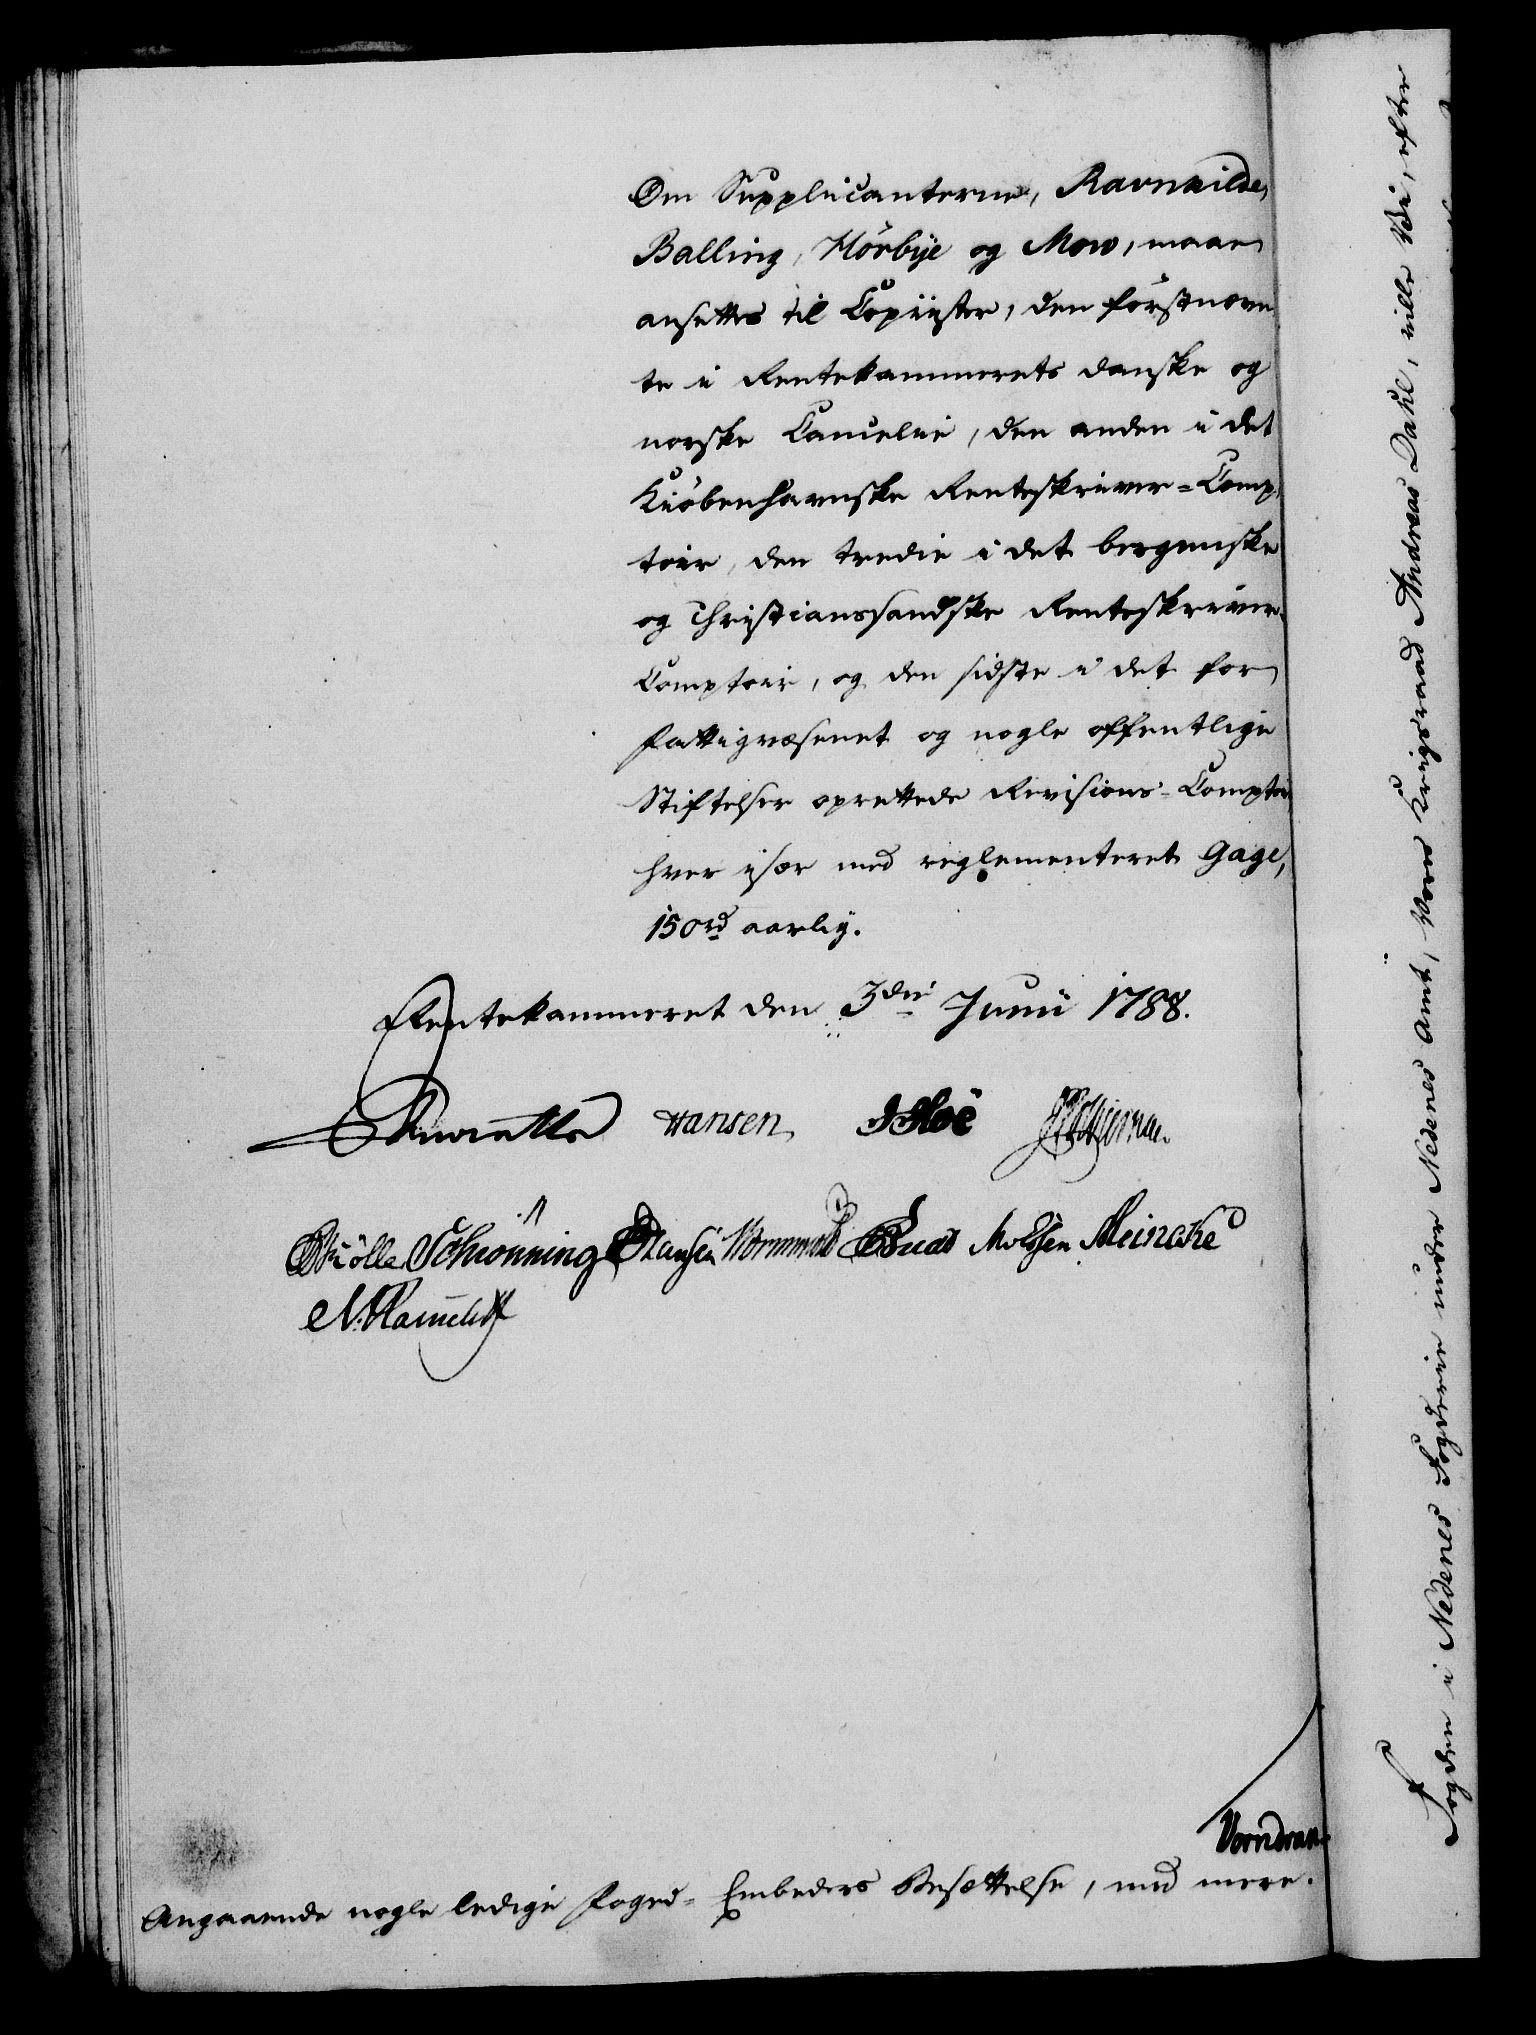 Om Supplicanterne, Ravnkilde,
Balling, Hörbye og Mow, maae
ansættes til Copiister, den förstnævn
te i Rentekammerets danske og
norske Cancelie, den anden i det
Kiöbenhavnske Renteskriver-Comp,
toir, den tredie i det bergenske
og Christianssandske Renteskriver-
Comptoir, og den sidste i det for
Fattigvæsenet og nogle offentlige
Stiftelser oprettede Revisions-Comptoir
hver især med reglementeret Gage,
150rd aarlig.
Rentekammeret den 3die Junii 1788.
Hansen
Schionning Hansen Wormskiold Meincke
Vorndran.
Angaaende nogle ledige Foged-Embeders Besættelse, med mere.
Fogden i Nedenes Fogderie under Nedenes Amt, Vores Krigsraad Andreas Dahl, ville Vi, efter